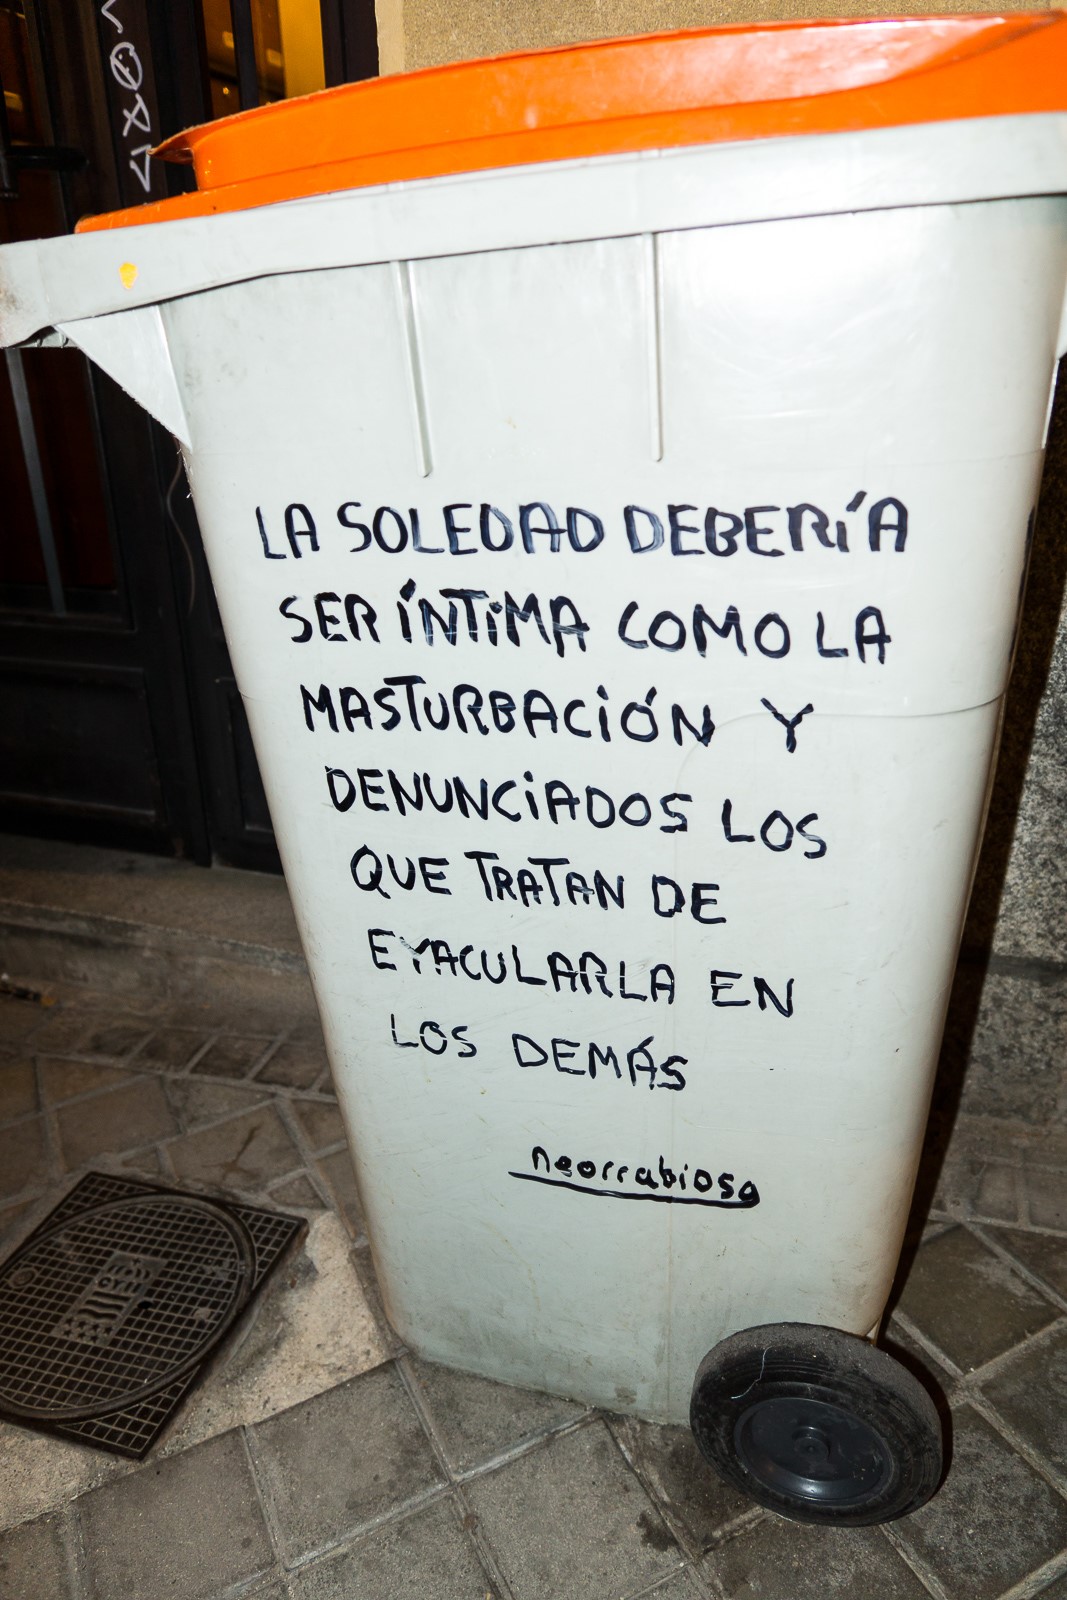 LA SOLEDAD DEBERÍA
SER ÍNTIMA COMO LA
MASTURBACIÓN Y
DENUNCIADOS LOS
QUE TRATAN DE
EYACULARLA EN
LOS DEMÁS
neorrabioso